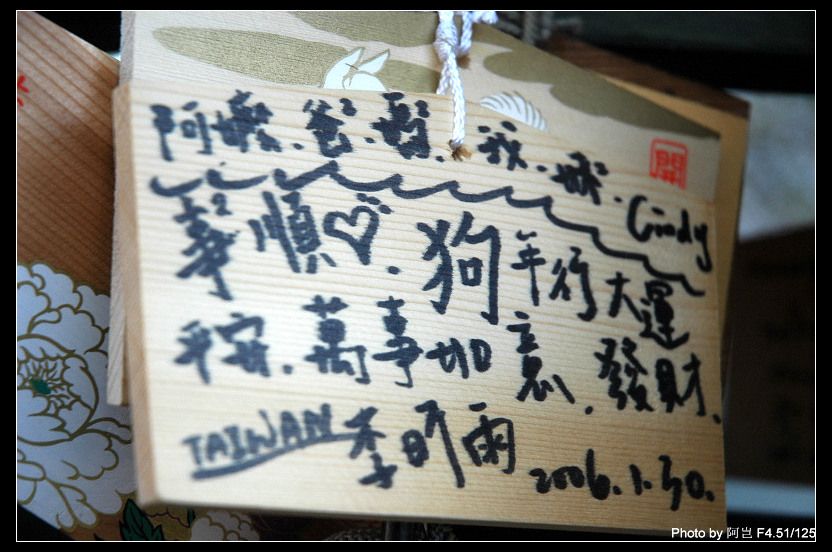 阿嬤.爸2.媽2.我.妹2.Cindy
開
事2順.狗年行大運
平安.萬事如意.發財.
TAIWAN 李昕雨
2006.1.30.
Photo by 阿岂 F4.51/125